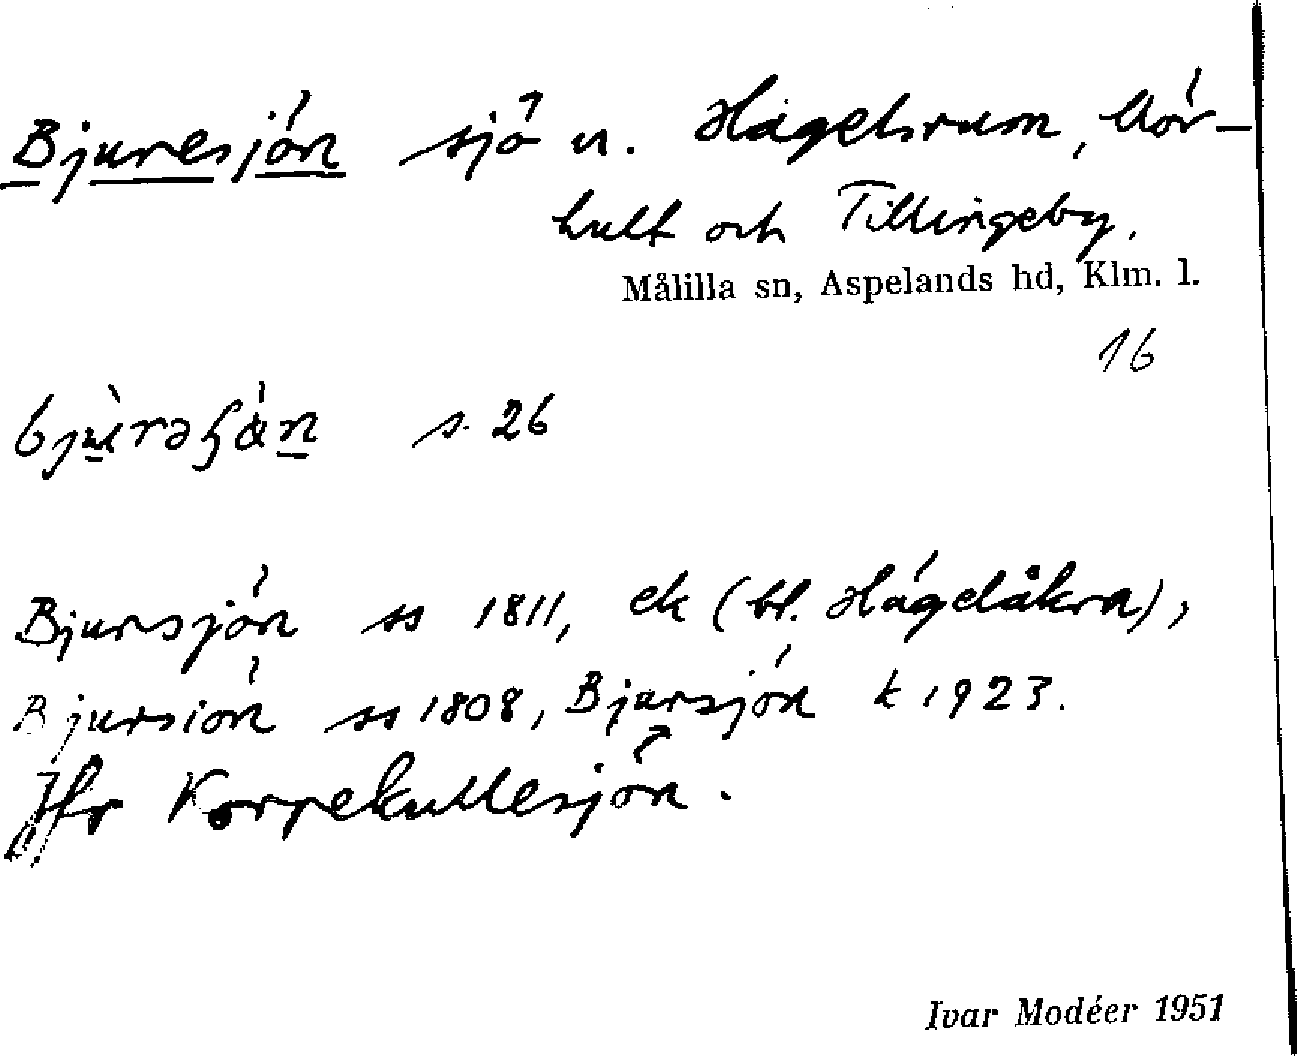 Bjuresjön sjö u. Hagelsrum, Mör-
hult och Tillingeby.
Målilla sn, Aspelands hd, Klm. l.
16
s. 26
Bjursjön ss 1811, ek (bl. Hägelåkra),
Bjursiön ss 1808, Bjursjön k 1923.
Jfr Korpekullesjön.
Ivar Modéer 1951